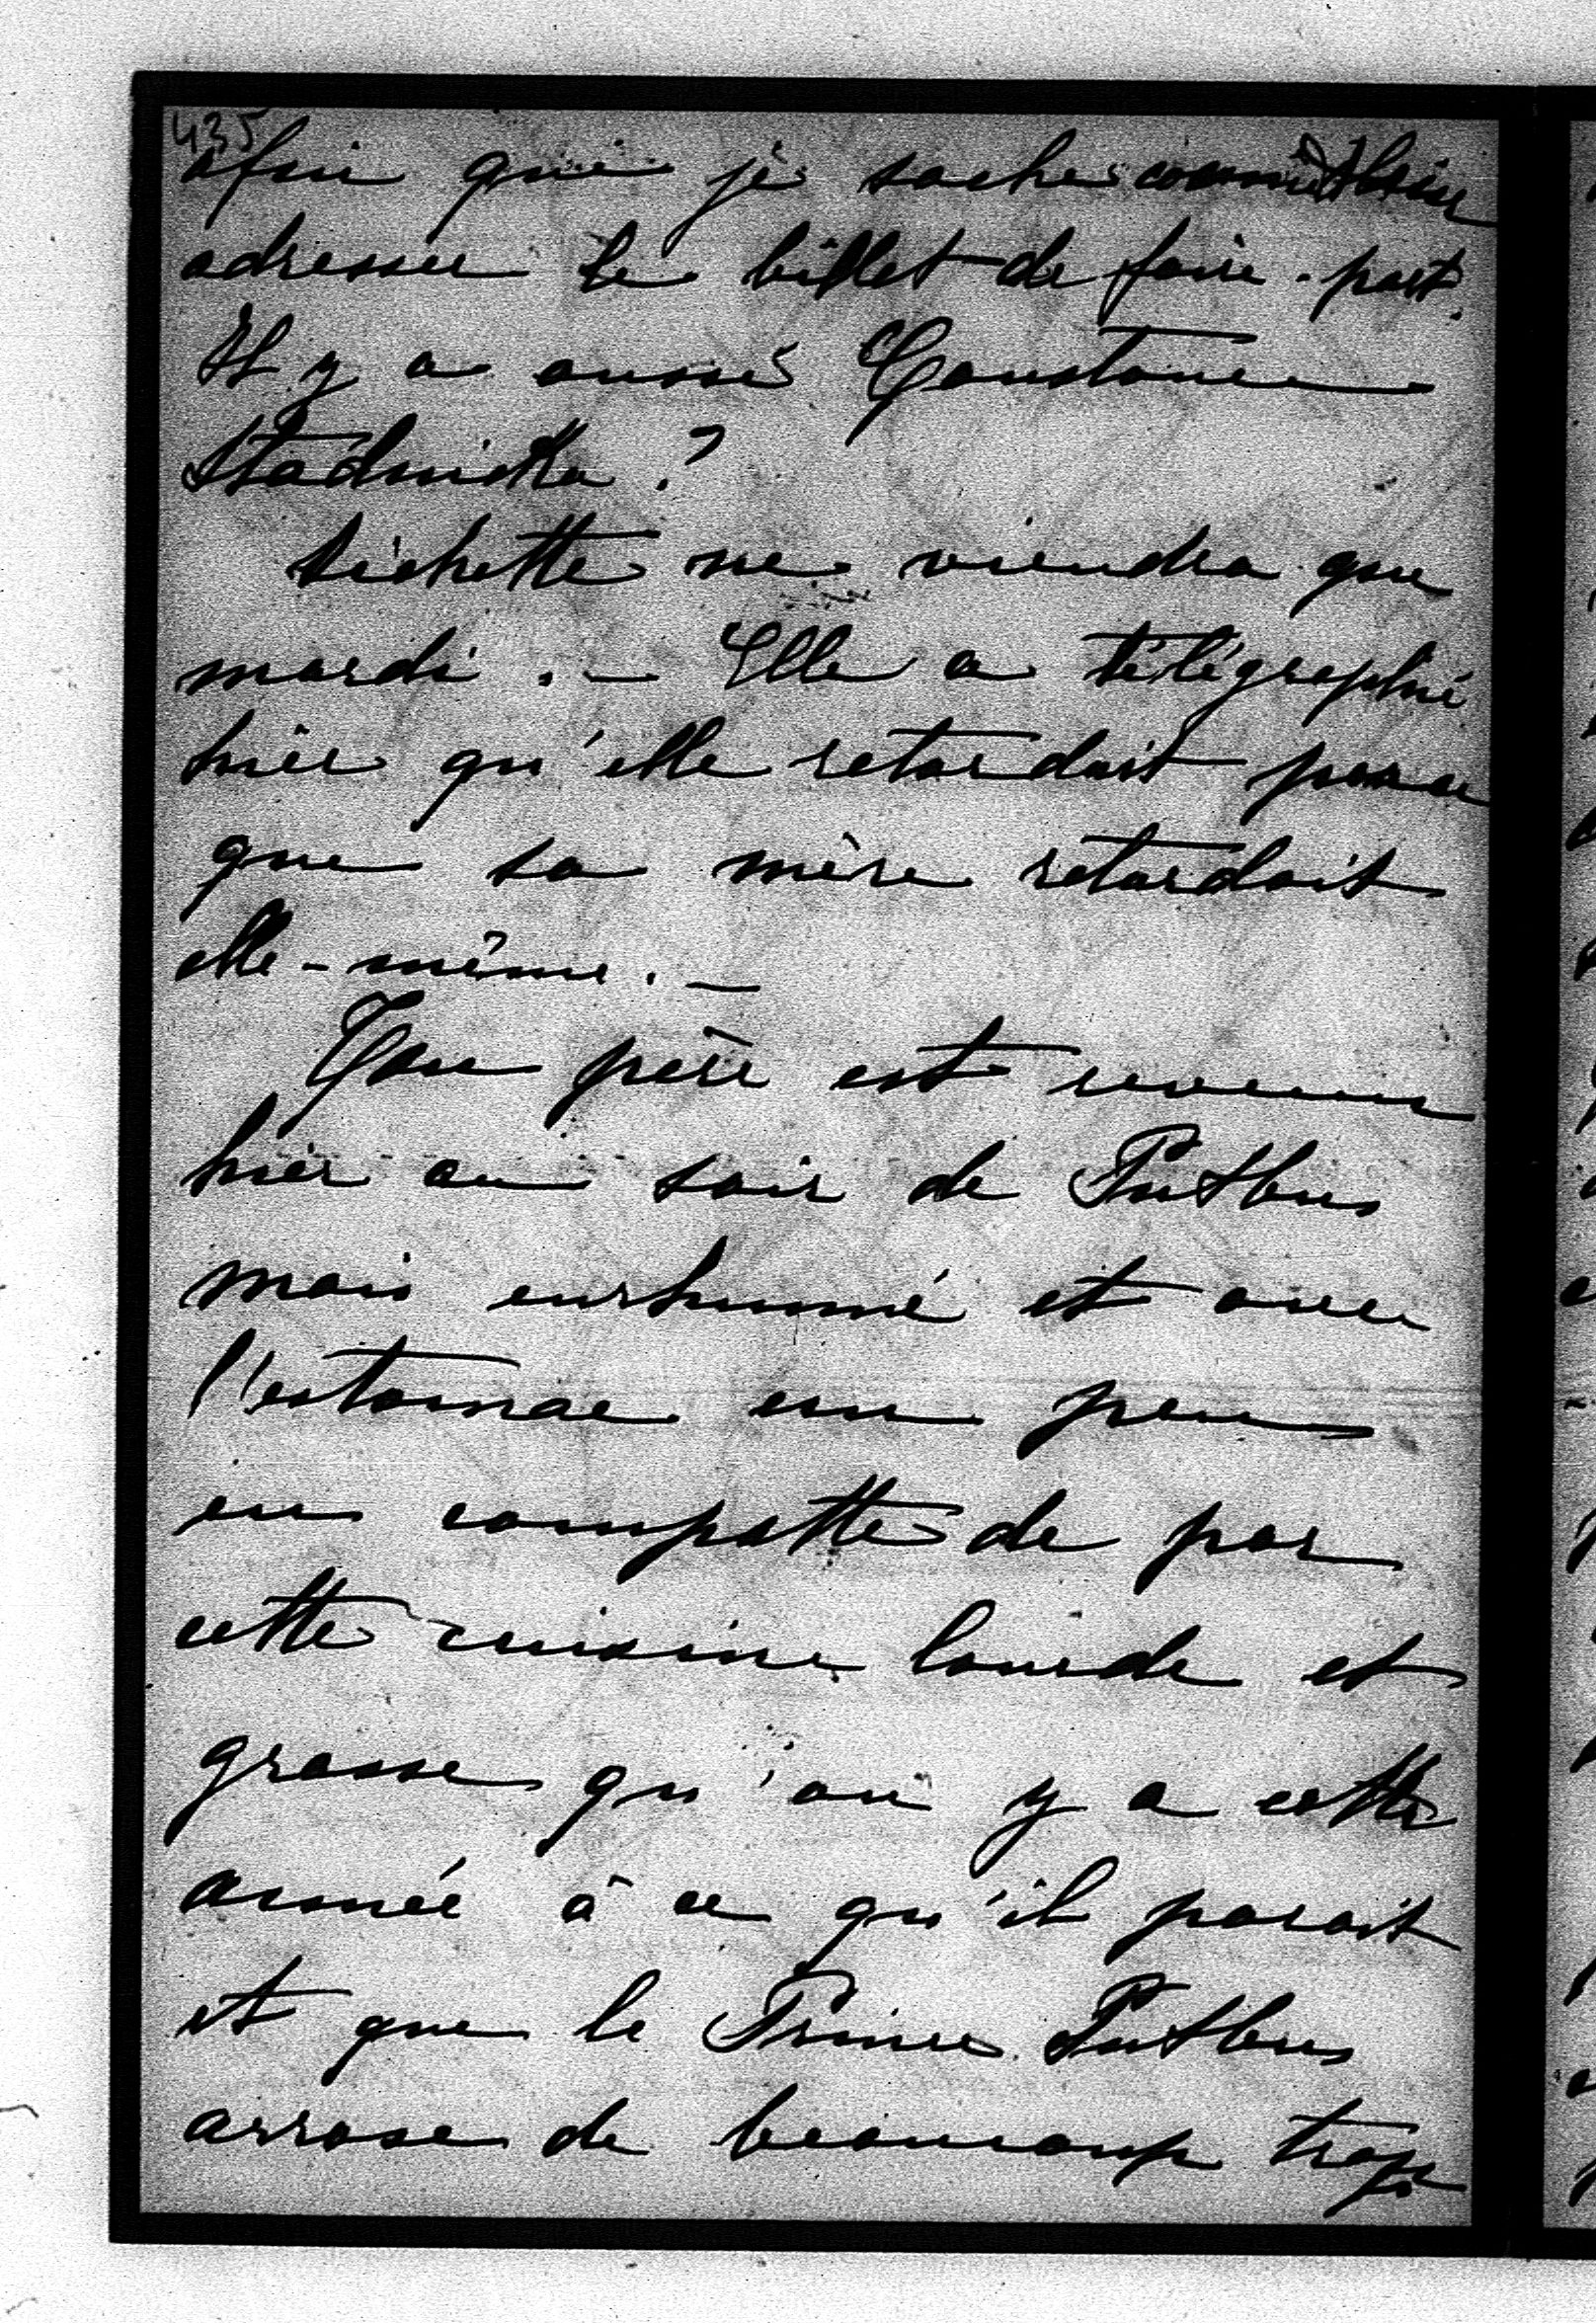 435
afin que je sache comment
adresser le billet de faire-part.
Il y a aussi Constance
Stadnicka ?
Sichette ne viendra que
mardi. — Elle a télégraphié
hier qu'elle retardait parce
que sa mère retardait
elle-même. —
Ton père est revenu
hier au soir de Putbus
mais enrhumé et avec
l'estomac un peu
en compotte de par
cette cuisine lourde et
grasse qu'on y a cette
année à ce qu'il parait
et que le Prince Putbus
arrose de beaucoup trop